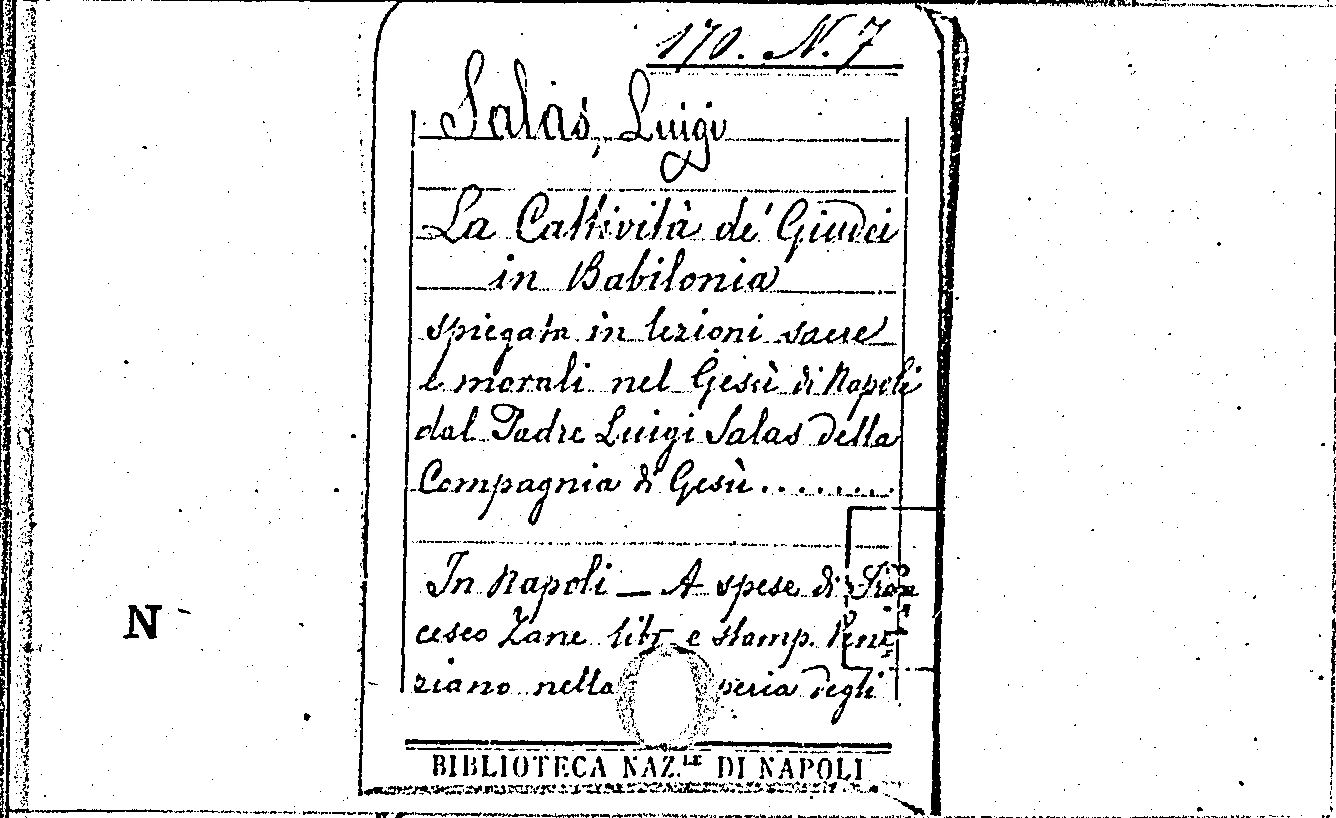 170. N. 7
Salas, Luigi
La Cattività de' Giudei
in Babilonia
spiegata in lezioni sacre
e morali nel Gesù di Napoli
dal Padre Luigi Salas della
Compagnia di Gesù ........
In Napoli — A spese di Fran
cesco Zane libr e stamp. Vene
ziano nella peria degli
N
BIBLIOTECA NAZ.LE DI NAPOLI